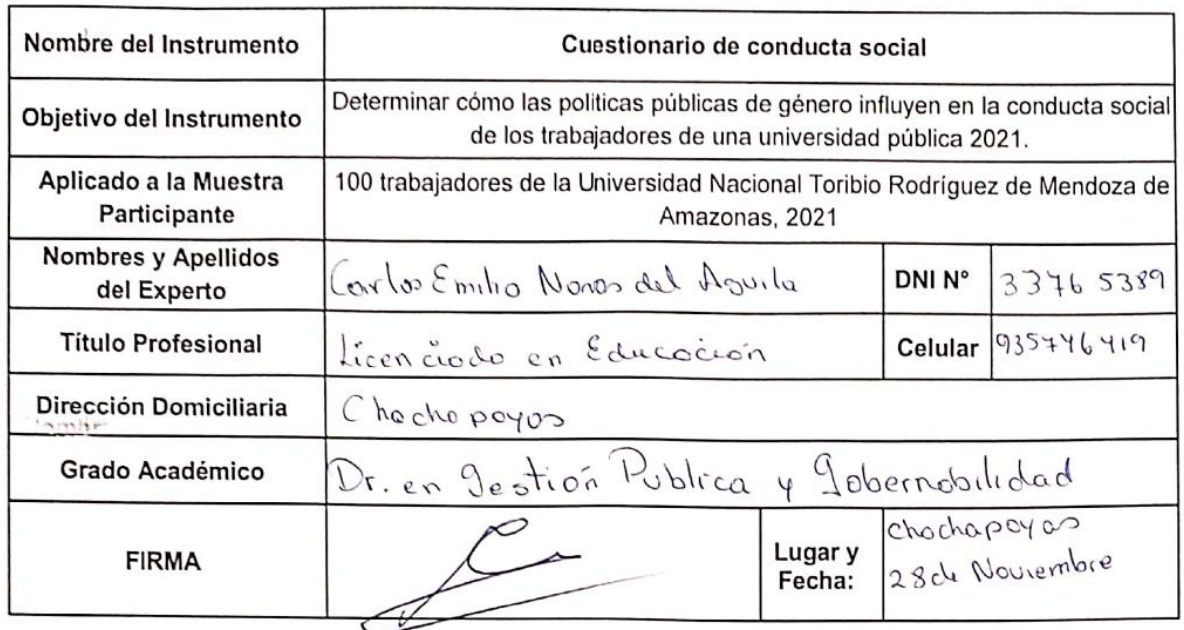 Nombre del Instrumento
Cuestionario de conducta social
Objetivo del Instrumento
Determinar cómo las politicas públicas de género influyen en la conducta social
de los trabajadores de una universidad pública 2021.
Aplicado a la Muestra
Participante
100 trabajadores de la Universidad Nacional Toribio Rodríguez de Mendoza de
Amazonas, 2021
Nombres y Apellidos
del Experto
Carlos Emilio Nonos del Aguila
DNI N°
3376 5389
Título Profesional
Licenciado en Educación
Celular
935746419
Dirección Domiciliaria
Chachapoyas
Grado Académico
Dr. en Gestión Publica y Gobernabilidad
FIRMA
Lugar y
Fecha:
Chachapoyas
28 de Noviembre